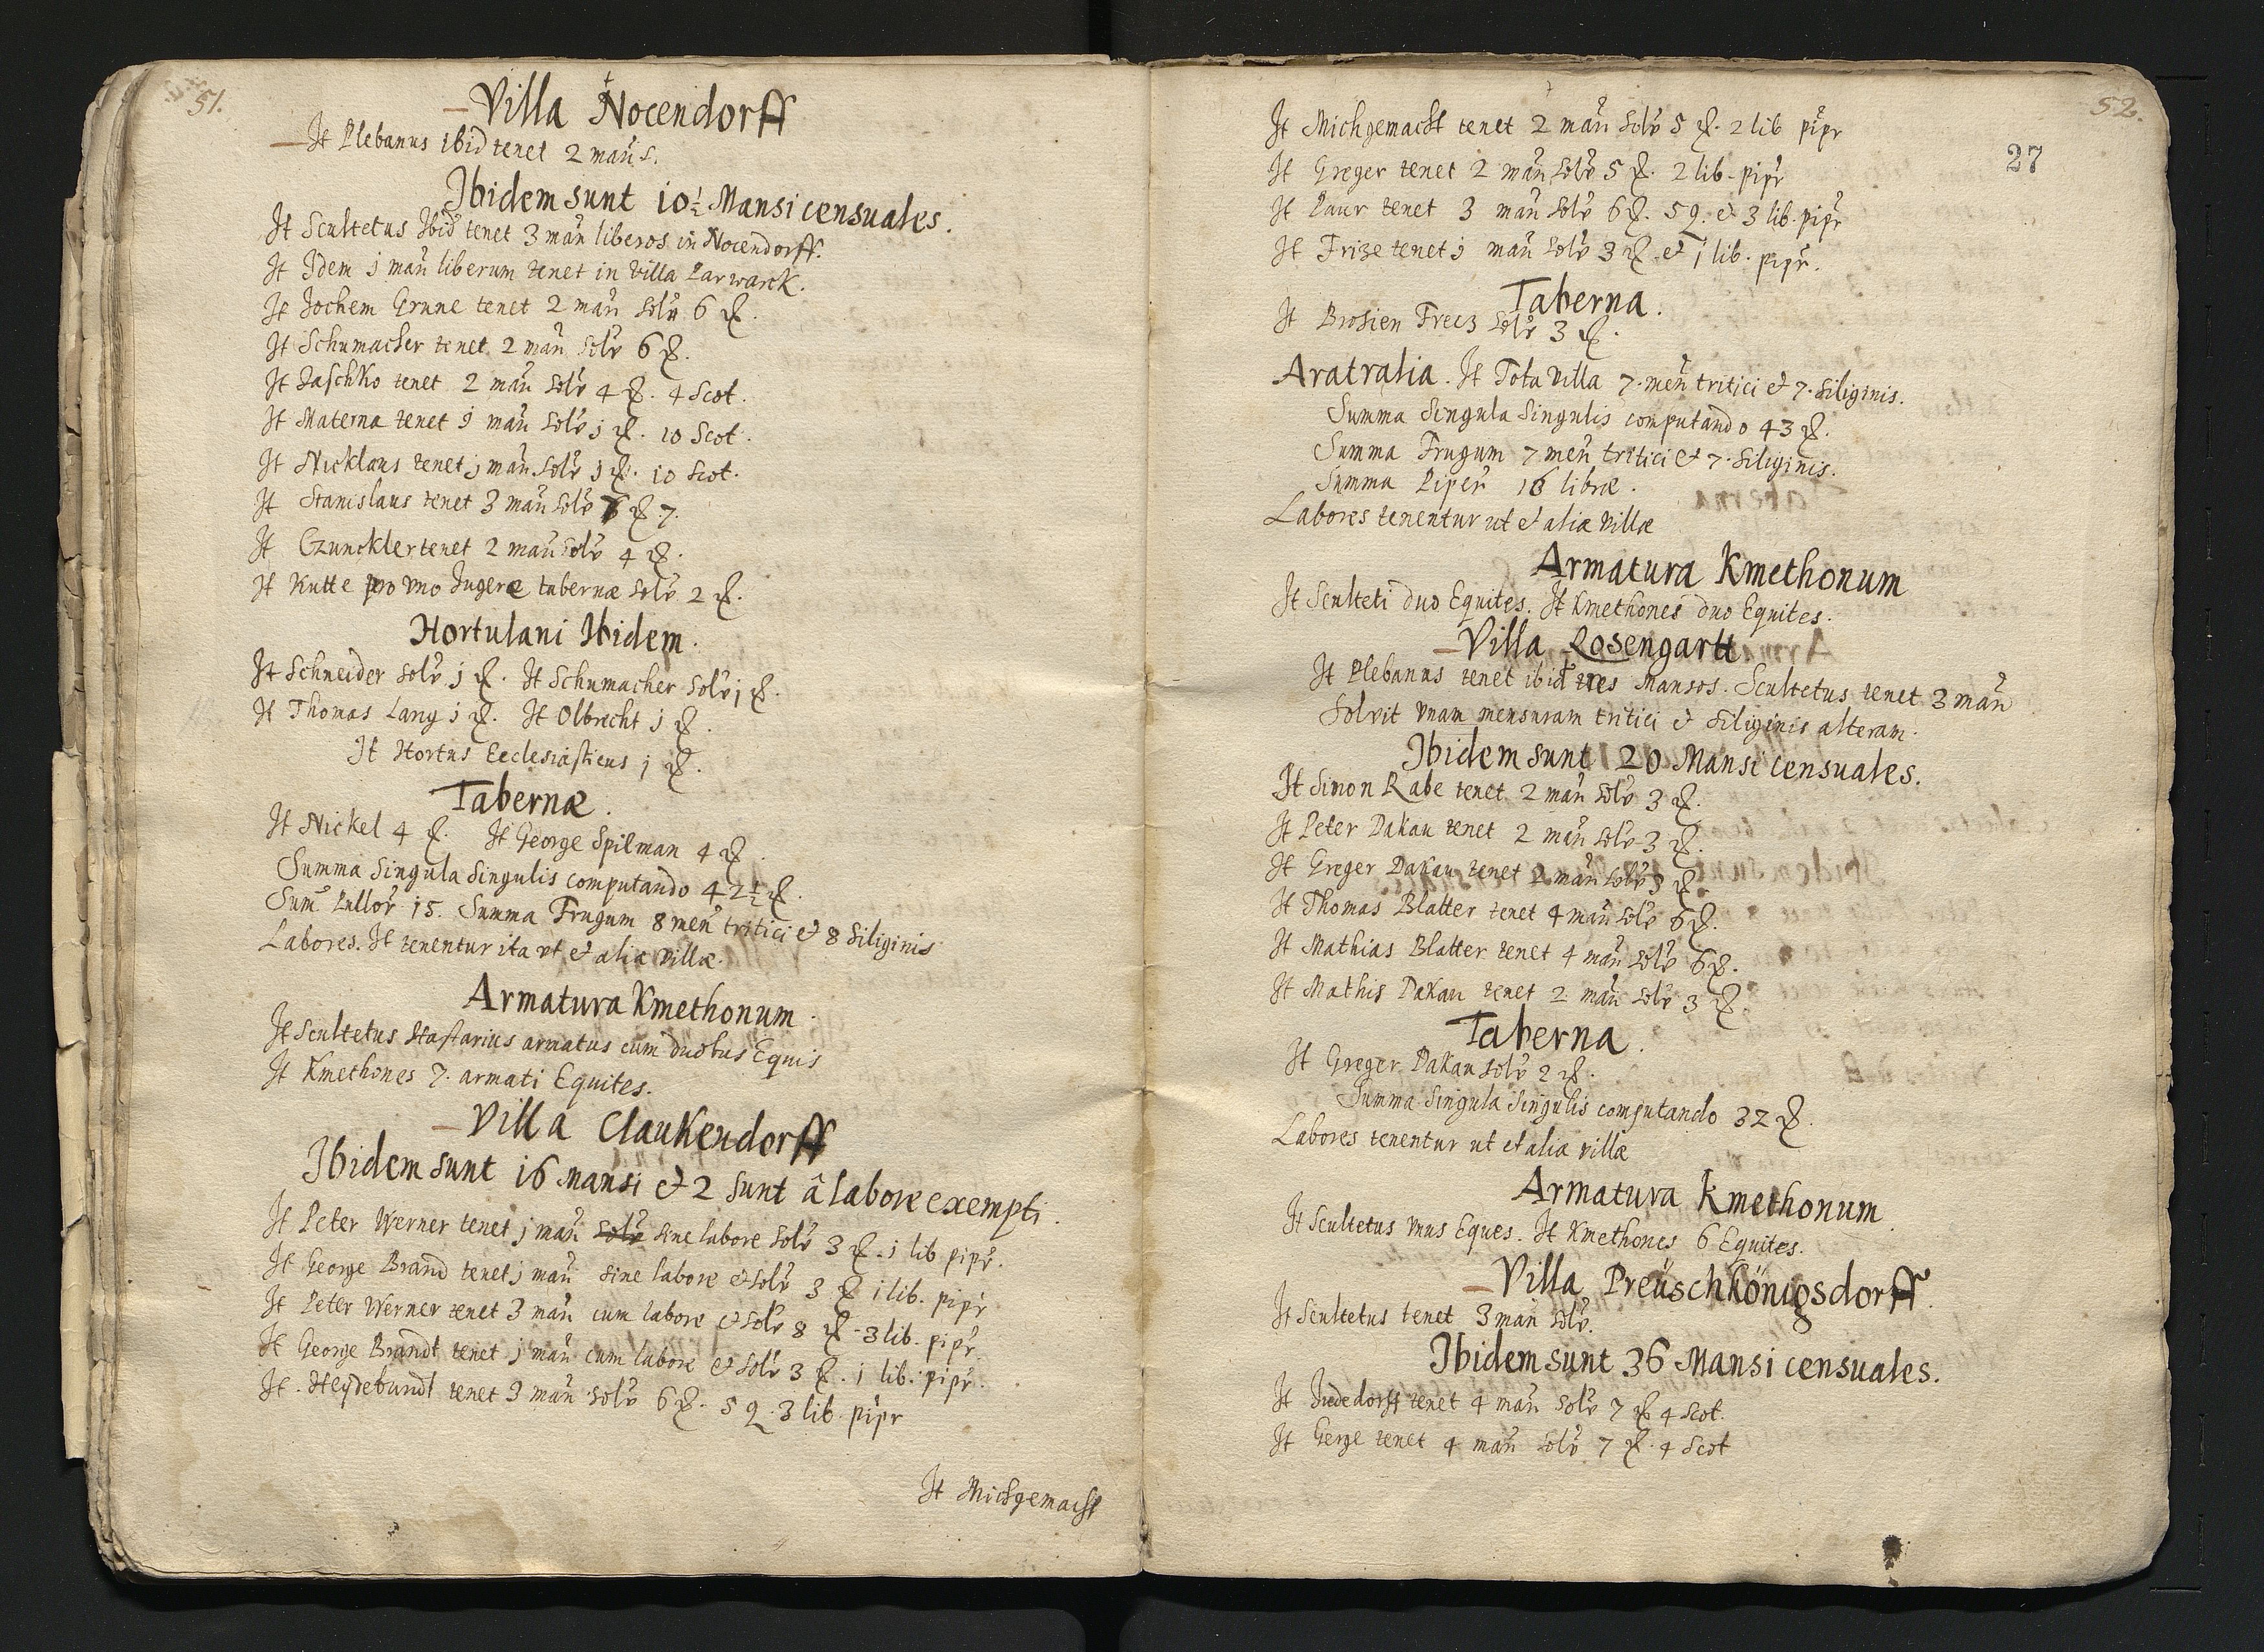 51.
Villa Nocendorff
It Plebanus ibid tenet 2 mañs.
Ibidem sunt 10½ Mansi censuales.
It Scultetus Ibid tenet 3 mañ liberos in Nocendorff.
It Idem j mañ liberum tenet in Villa Parwarck.
It Jochem Grune tenet 2 mañ solv 6 ℳ.
It Schumacher tenet 2 mañ solv 6 ℳ.
It Paschko tenet 2 mañ solv 4 ℳ. 4 Scot.
It Materna tenet j mañ solv j ℳ. 10 Scot.
It Nicklaus tenet j mañ solv j ℳ. 10 Scot.
It Stanislaus tenet 3 mañ solv ℳ. 7.
It Czunckler tenet 2 mañ solv 4 ℳ.
It Kutte pro vno Jugere tabernæ solv 2 ℳ.
Hortulani Ibidem.
It Schneider solv j ℳ. It Schumacher solv j ℳ.
It Thomas Lang j ℳ. It Olbrecht j ℳ.
It Hortus Ecclesiasticus j ℳ.
Tabernæ.
It Nickel 4 ℳ. It George Spilman 4 ℳ.
Summa Singula Singulis computando 42½ ℳ.
Sum̃ Pullor 15. Summa Frugum 8 meñ tritici et 8 Siliginis
Labores. It tenentur ita vt et aliæ villæ.
Armatura Kmethonum.
It Scultetus Hastarius armatus cum duobus Equis
It Kmethones 7. armati Equites.
Villa Claukendorff
Ibidem sunt 16 Mansi et 2 sunt â labore exempti.
It Peter Werner tenet j mañ solv sine labore solv 3 ℳ. j lib pipr.
It George Brand tenet j mañ sine labore et solv 3 ℳ j lib. pipr
It Peter Werner tenet 3 mañ cum labore et solv 8 ℳ. 3 lib. pipr.
It George Brandt tenet j mañ cum labore et solv 3 ℳ. j lib. pipr.
It Heydebundt tenet 3 mañ solv 6 ℳ. 5 q. 3 lib. pipr
It Michgemacht
52.
27
It Michgemacht tenet 2 mañ solv 5 ℳ. 2 lib pipr
It Greger tenet 2 mañ solv 5 ℳ. 2 lib. pipr
It Paur tenet 3 mañ solv 6 ℳ. 5 q. et 3 lib. pipr
It Frize tenet j mañ solv 3 ℳ. et j lib. pipr.
Taberna.
It Brosien Frecz solv 3 ℳ.
Aratralia. It Tota Villa 7. meñ tritici et 7. Siliginis.
Summa Singula Singulis computando 43 ℳ.
Summa Frugum 7 meñ tritici et 7. Siliginis.
Summa Piper 16 libræ.
Labores tenentur ut et aliæ villæ
Armatura Kmethonum
It Sculteti duo Equites. It Kmethones duo Equites.
Villa Rosengartt
It Plebanus tenet ibid tres Mansos. Scultetus tenet 3 mañ
Solvit vnam mensuram tritici et Siliginis alteram.
Ibidem sunt 20 Mansi censuales.
It Simon Rabe tenet 2 mañ solv 3 ℳ.
It Peter Dakau tenet 2 mañ solv 3 ℳ.
It Greger Dakau tenet 2 mañ solv 3 ℳ.
It Thomas Blatter tenet 4 mañ solv 6 ℳ.
It Mathias Blatter tenet 4 mañ solv 6 ℳ.
It Mathis Dakau tenet 2 mañ solv 3 ℳ.
Taberna.
It Greger Dakau solv 2 ℳ.
Summa Singula Singulis computando 32 ℳ.
Labores tenentur ut et aliæ villæ
Armatura Kmethonum.
It Scultetus vnus Eques. It Kmethones 6 Equites.
Villa Preüschkönigsdorff.
It Scultetus tenet 3 mañ solv.
Ibidem sunt 36 Mansi censuales.
It Judedorff tenet 4 mañ solv 7 ℳ 4 Scot.
It Gerge tenet 4 mañ solv 7 ℳ. 4 Scot